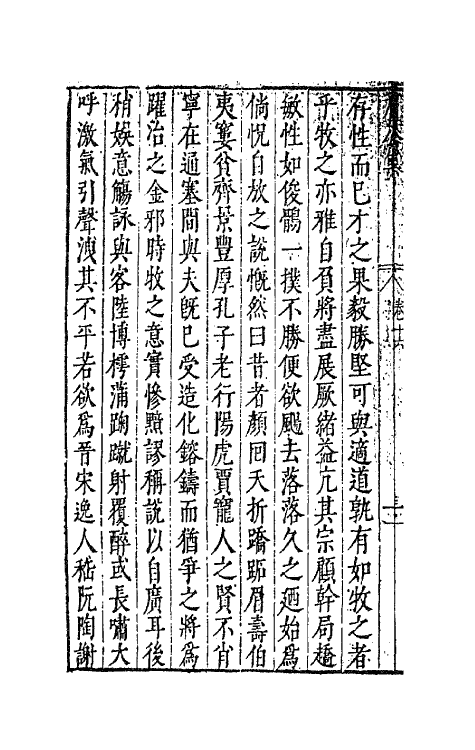 存性而已才之果毅勝堅可與適道孰有如牧之者
乎牧之亦雅自負將盡展厥緒益亢其宗顧幹局趫
敏性如俊鶻一撲不勝便欲颺去落落久之廼始爲
倘怳自放之說慨然曰昔者顏囘夭折蹻跖眉壽伯
夷寠貧齊景豐厚孔子老行陽虎賈寵人之賢不肖
寧在通塞間與夫既已受造化鎔鑄而猶爭之將爲
躍冶之金邪時牧之意實慘黯謬稱說以自廣耳後
稍娛意觴詠與客陸博樗蒲踘蹴射覆醉或長嘯大
呼激氣引聲洩其不平若欲爲晉宋逸人嵇阮陶謝